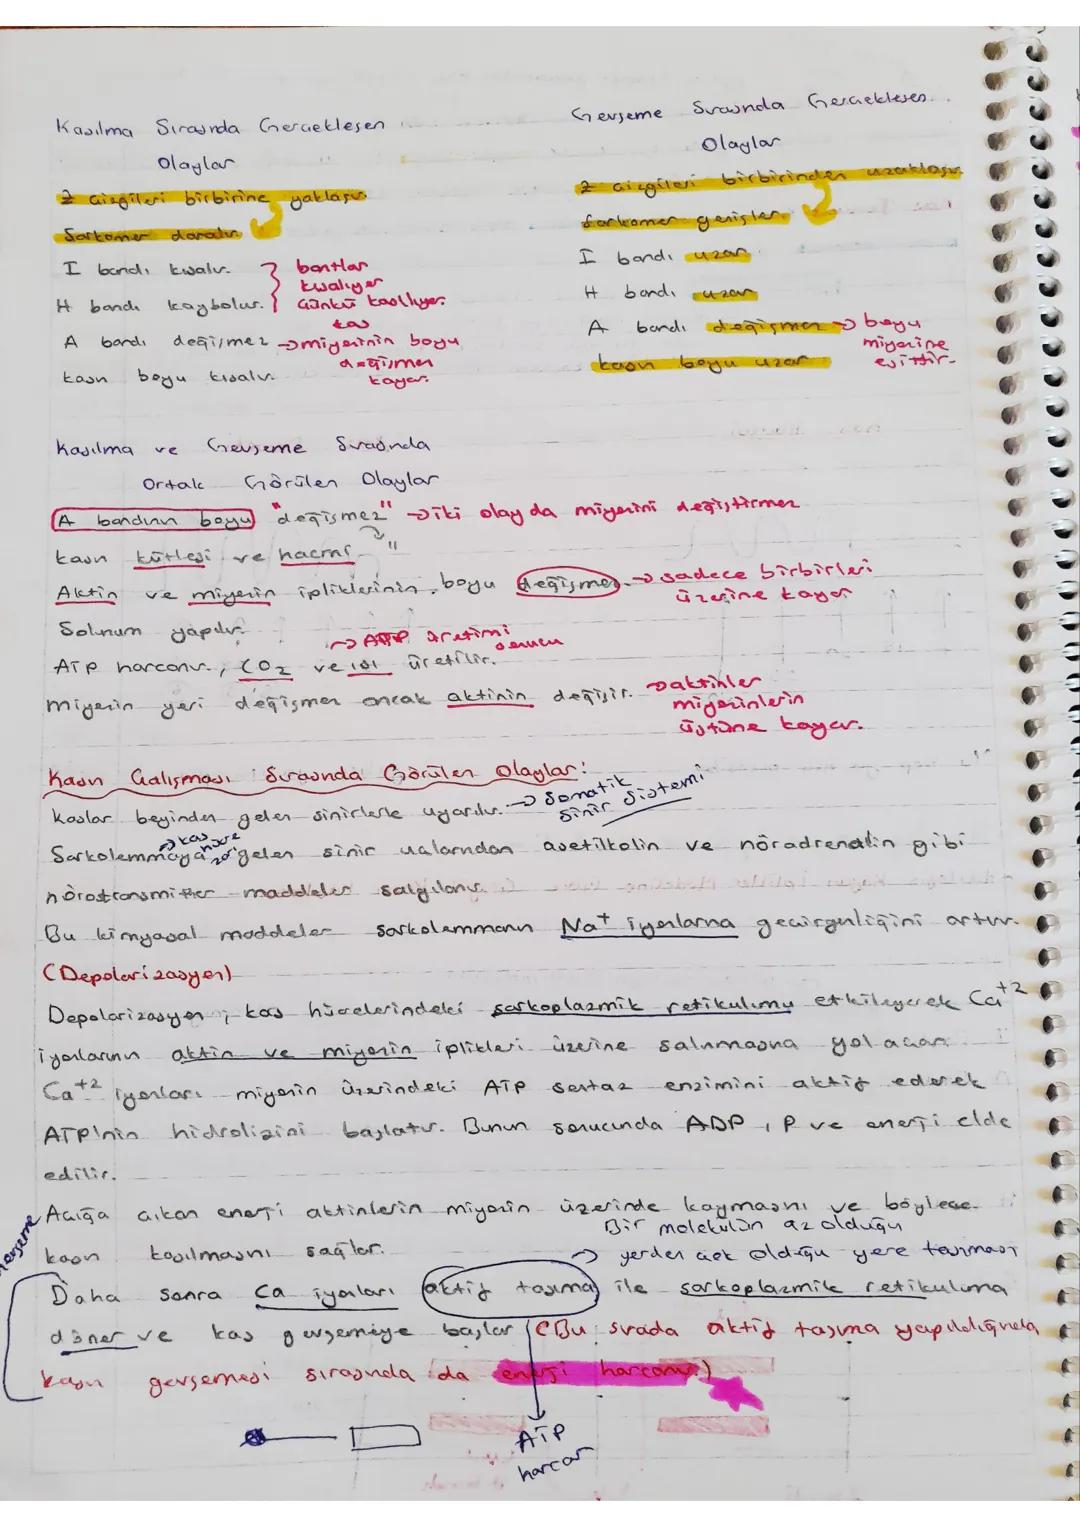 Kasılma Sırasında Gerçekleşen
Olaylar
Z çizgileri birbirine yaklaşır.
Sarkomer daralır.
I bandı kısalır.
H bandı kaybolur.
bantlar
kısalıyor
çünkü kasılıyor.
kas
A bandı değişmez → miyozinin boyu
değişmez
kayar.
kasın boyu kısalır.
Gevşeme Sırasında Gerçekleşen
Olaylar
Z çizgileri birbirinden uzaklaşır.
Sarkomer genişler.
I bandı uzar.
H bandı uzar
A bandı değişmez → boyu
miyozine
eşittir.
kasın boyu uzar
Kasılma ve Gevşeme Sırasında
Ortak Görülen Olaylar
A bandının boyu "değişmez" → iki olay da miyozini değiştirmez
kasın kütlesi ve hacmi "
Aktin ve miyozin ipliklerinin boyu değişmez. → sadece birbirleri
üzerine kayar
Solunum yapılır.
→ ATP üretimi
sonucu
ATP harcanır., CO2 ve ısı üretilir.
miyozin yeri değişmez ancak aktinin değişir. → aktinler
miyozinlerin
üstüne kayar.
Kasın Çalışması Sırasında Görülen Olaylar:
kaslar beyinden gelen sinirlerle uyarılır. → Somatik
Sinir Sistemi
→ kas hücre
zarı
Sarkolemmaya gelen sinir uçlarından asetilkolin ve nöradrenalin gibi
nörotransmitter maddeler salgılanır.
Bu kimyasal maddeler sarkolemmanın Na+ iyonlarına geçirgenliğini artırır.
(Depolarizasyon)
Depolarizasyon; kas hücrelerindeki sarkoplazmik retikulumu etkileyerek Ca+2
iyonlarının aktin ve miyozin iplikleri üzerine salınmasına yol açar.
Ca+2 iyonları miyozin üzerindeki ATP sentaz enzimini aktif ederek
ATP'nin hidrolizini başlatır. Bunun sonucunda ADP, P ve enerji elde
edilir.
Açığa çıkan enerji aktinlerin miyozin üzerinde kaymasını ve böylece
kasın kasılmasını sağlar.
Bir molekülün az olduğu
→ yerden çok olduğu yere taşınması
Gevşeme
Daha sonra Ca iyonları aktif taşıma ile sarkoplazmik retikuluma
döner ve kas gevşemeye başlar (Bu sırada aktif taşıma yapıldığında
kasın gevşemesi sırasında da enerji harcanır.)
ATP
harcar